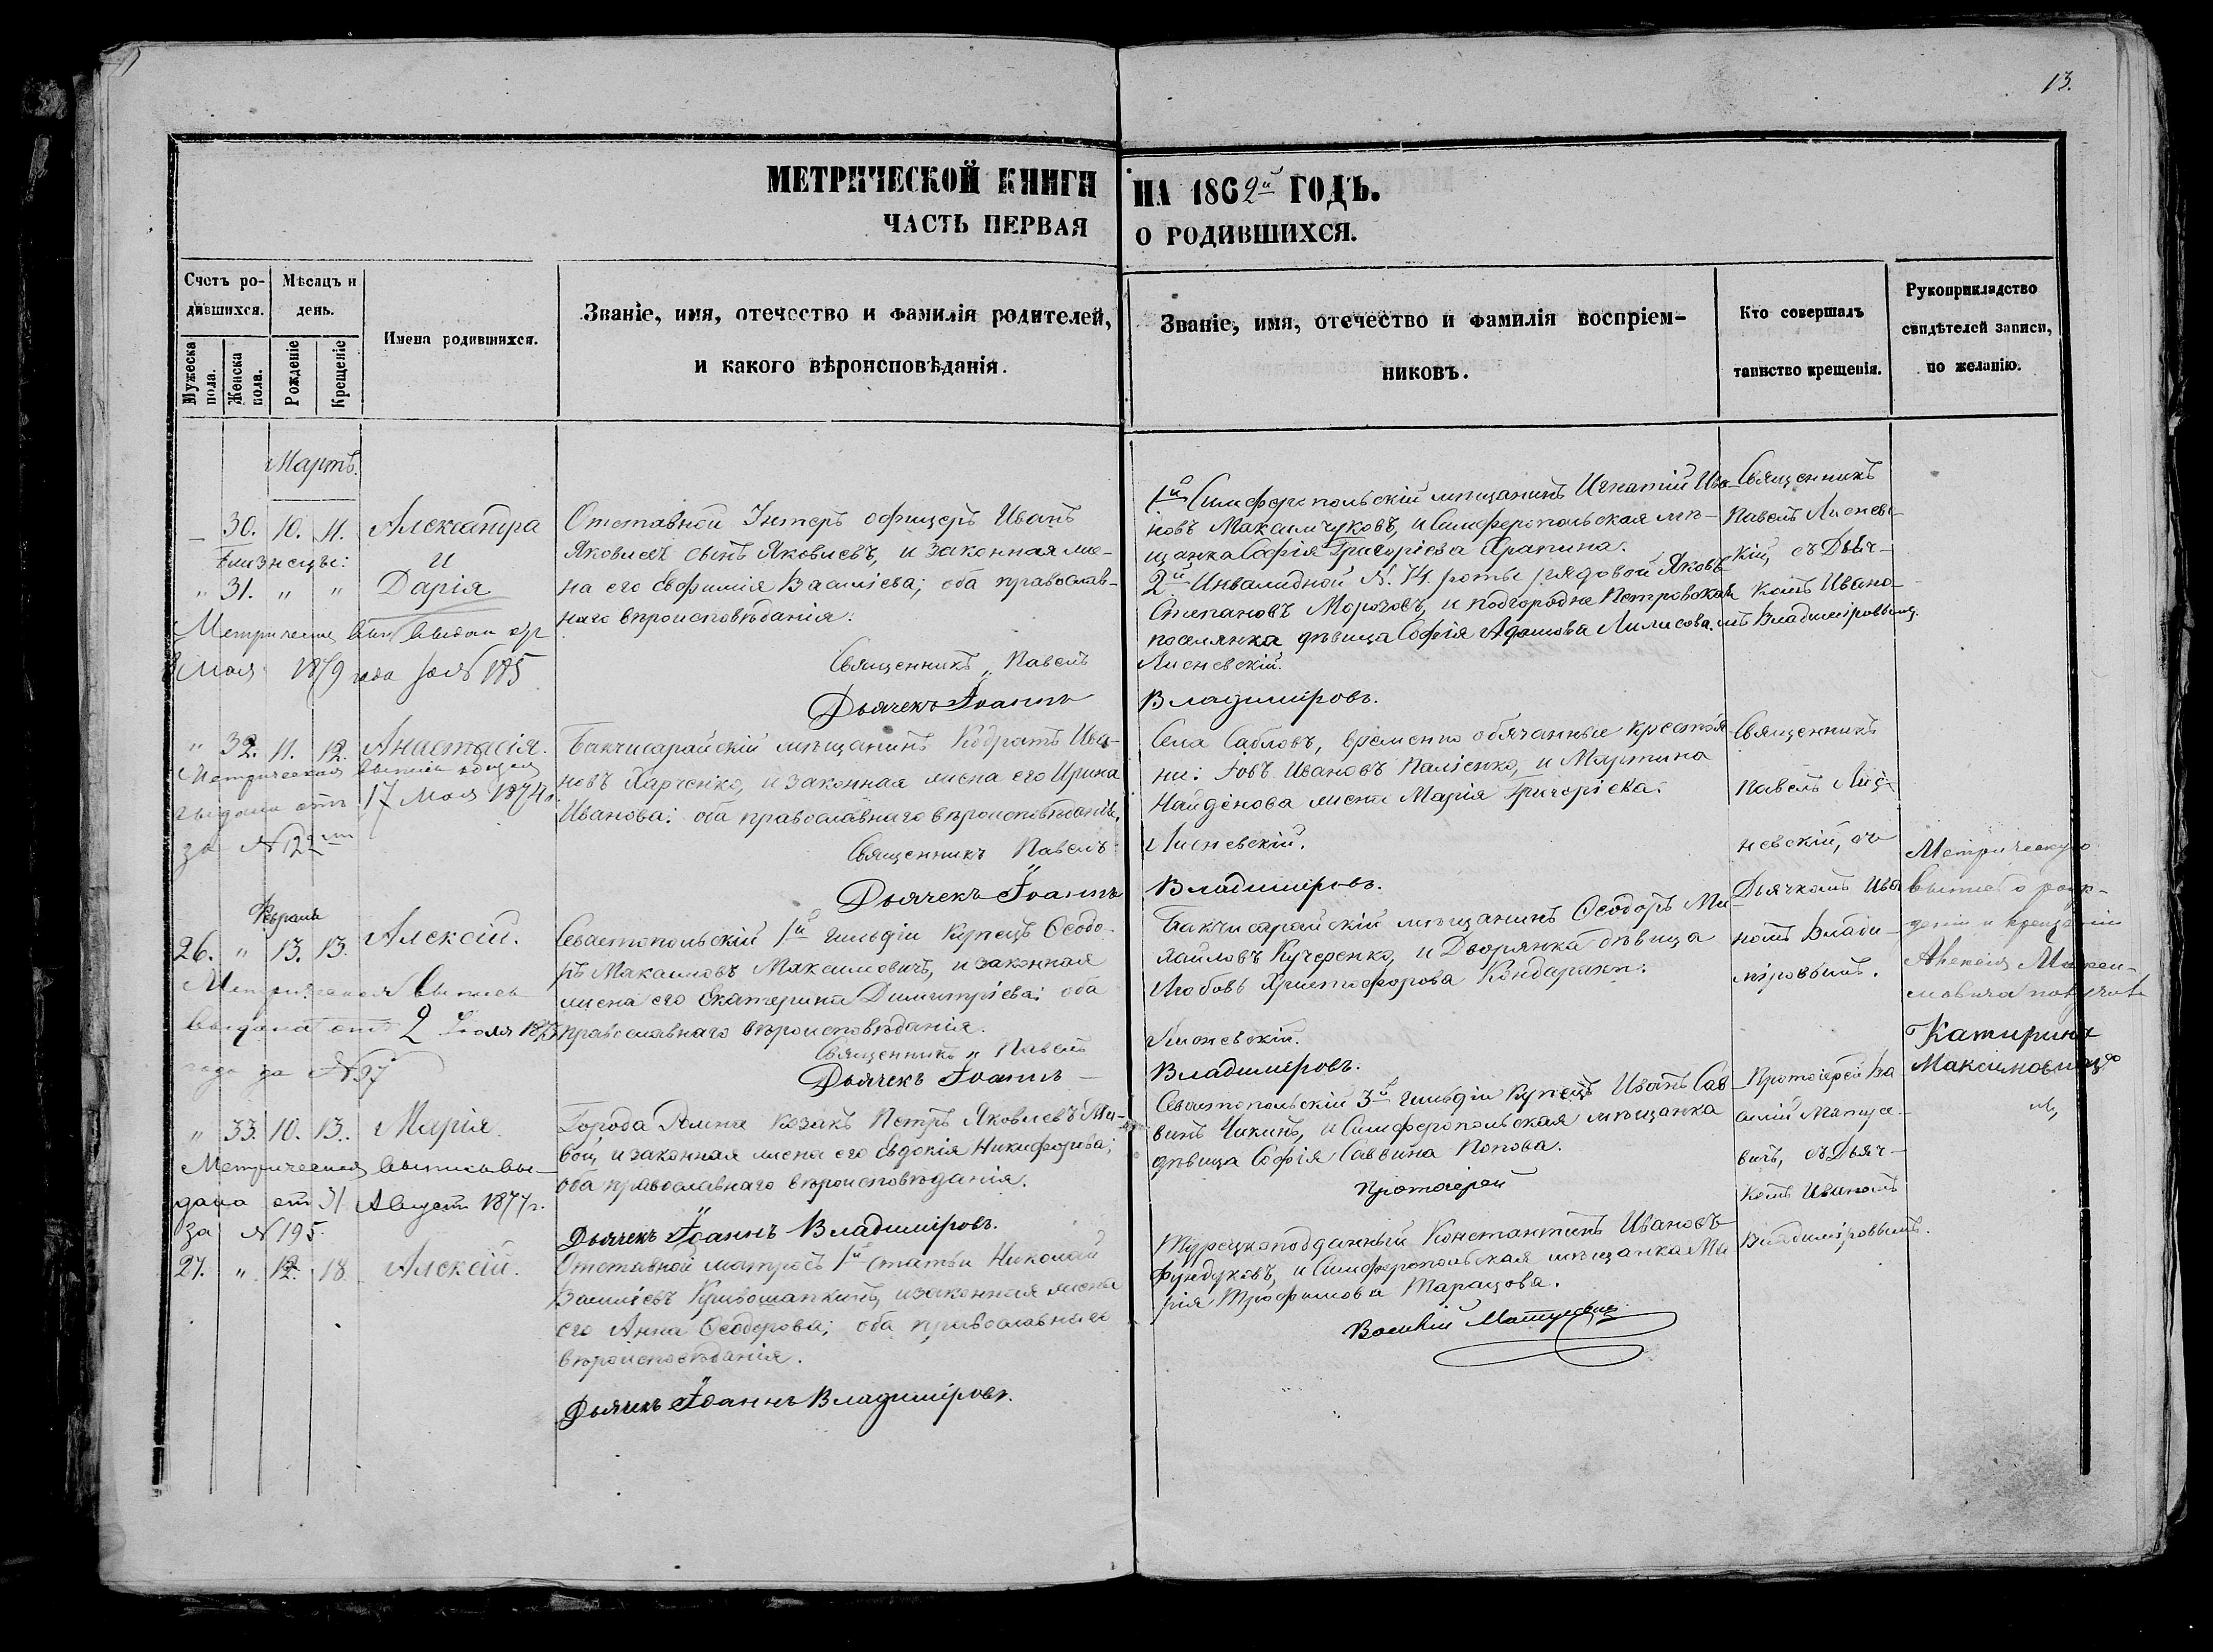 13.
МЕТРИЧЕСКОЙ КНИГИ НА 1862й ГОДЪ.
ЧАСТЬ ПЕРВАЯ О РОДИВШИХСЯ.
Счетъ ро-
дившихся.
Мужеска пола.
Женска пола.
Мѣсяцъ и
день.
Рожденіе
Крещеніе
Имена родившихся.
Званіе, имя, отечество и фамилія родителей,
и какого вѣроисповѣданія.
Званіе, имя, отечество и фамилія воспріем-
никовъ.
Кто совершалъ
таинство крещенія.
Рукоприкладство
свидѣтелей записи,
по желанію.
Мартъ.
30. 10. 11. Александра
близнецы: и
" 31. " " Дарія
8 Мая 1879 года за № 185
Отставной Унтеръ офицеръ Иванъ
Яковлевъ сынъ Яковлевъ, и законная же-
на его Евфимія Василіева; оба православ-
наго вѣроисповѣданія.
Священникъ Павелъ
Дьячекъ Іоаннъ
1й Симферопольскій мѣщанинъ Игнатій Ива-
новъ Максимчуковъ, и Симферопольская мѣ-
щанка Софія Григоріева Арапина.
2й Инвалидной № 14. роты рядовой Яковъ
Степановъ Морозовъ, и подгородне Петровская
поселянка дѣвица Софія Адамова
Лисневскій.
Владиміровъ.
Священникъ
Павелъ Лиснев-
кій, съ Дьяч-
комъ Ивано-
мъ Владиміровымъ.
" 32. 11. 12. Анастасія.
Метрическая выпись
выдана отъ 17 Мая 1874 г.
за № 122
Бакчисарайскій мѣщанинъ Кодратъ Ива-
новъ Харченко, и законная жена его Ирина
Иванова: оба православнаго вѣроисповѣданія.
Священникъ Павелъ
Дьячекъ Іоаннъ
Села Сабловъ, временно обязанные крестья-
ни: Іовъ Ивановъ Паліенко, и Мартина
Найденова жена Марія Григоріева.
Лисневскій.
Владиміровъ.
Священникъ
Павелъ Лис-
невскій, съ
Дьячкомъ Ива-
номъ Влади-
міровымъ.
Февраля
26. " 13. 13. Алексій.
Метрическая выпись
выдана отъ 2 Іюля
года за № 37
Севастопольскій 1й гильдіи Купецъ Ѳеодо-
ръ Максимовъ Максимовичъ, и законная
жена его Екатерина Димитріева; оба
православнаго вѣроисповѣданія.
Священникъ Павелъ
Дьячекъ Іоаннъ
Бакчисарайскій мѣщанинъ Ѳеодоръ Ми-
хаиловъ Кучеренко, и Дворянка дѣвица
Любовь Христофорова Кондараки.
Лисневскій.
Владиміровъ.
Метрическую
выпись о рож-
деніи и крещеніи
Алексія Макси-
мовича получила
Катирина
Максимовичъ
" 33. 10. 13. Марія.
Метрическая выпись вы-
дана отъ 31 Августа 1877 г.
за № 195.
Города Ромна козакъ Петръ Яковлевъ
и законная жена его Евдокія Никифорова;
оба православнаго вѣроисповѣданія.
Дьячекъ Іоаннъ Владиміровъ.
Севастопольскій 3й гильдіи Купецъ Иванъ Сав-
винъ Чикинъ, и Симферопольская мѣщанка
дѣвица Софія Саввина Попова.
Протоіерей
Протоіерей Ва-
силій Матусе-
вичъ, съ Дьяч-
комъ Иваномъ
Владиміровымъ.
27. " 12. 18. Алексій.
Отставной матросъ 1й статьи Николай
Василіевъ Кривошапкинъ, и законная жена
его Анна Ѳеодорова; оба православнаго
вѣроисповѣданія.
Дьячекъ Іоаннъ Владиміровъ.
Турецкоподданный Константинъ Ивановъ
Фундуковъ, и Симферопольская мѣщанка Ма-
рія Трофимова Таращова.
Василій Матусевичъ